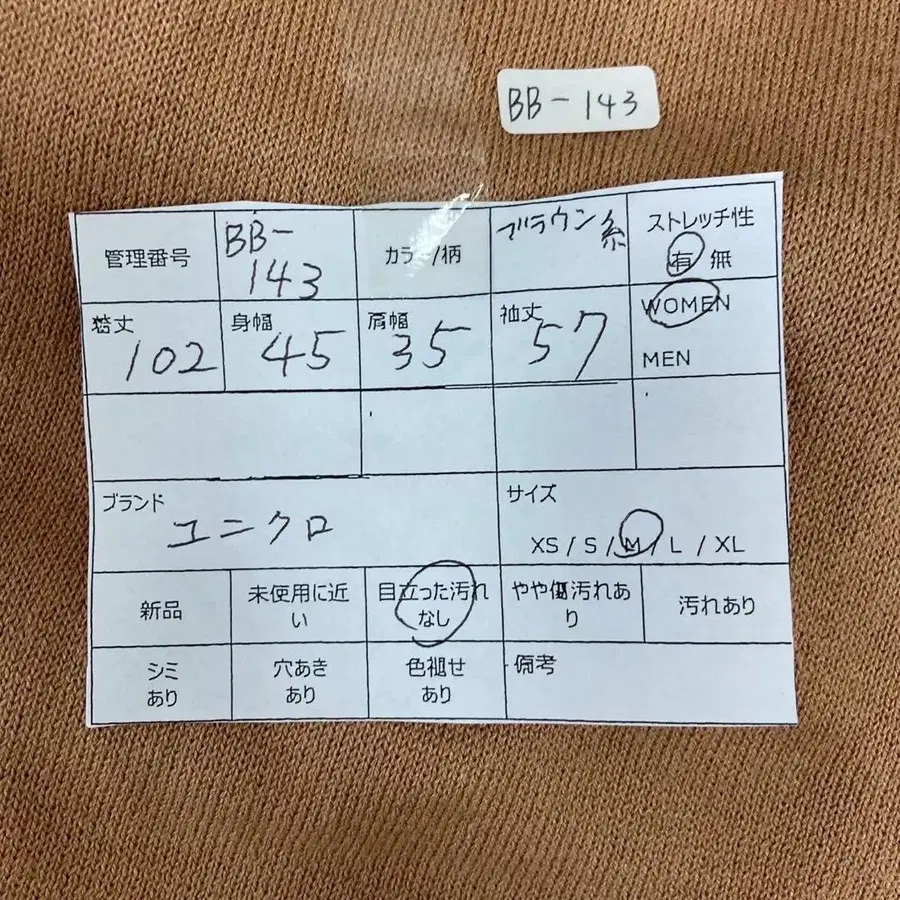 BB-143
管理番号
BB-
143
カラー/柄
ブラウン系
ストレッチ性
有 無
着丈
102
身幅
45
肩幅
35
袖丈
57
WOMEN
MEN
ブランド
ユニクロ
サイズ
XS / S / M / L / XL
新品
未使用に近
い
目立った汚れ
なし
やや傷汚れあ
り
汚れあり
シミ
あり
穴あき
あり
色褪せ
あり
備考